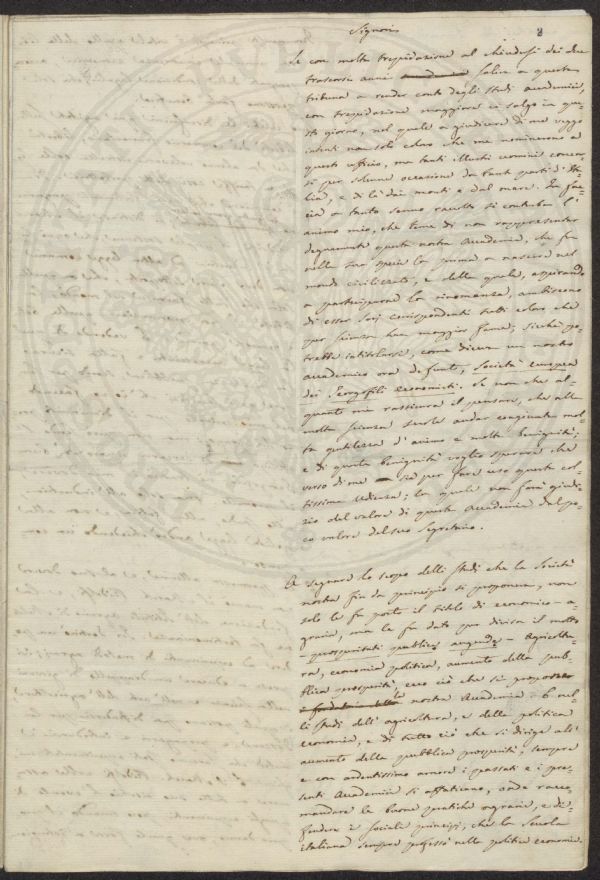 Signori
8
Se con molta trepidazione al chiudersi dei due
trascorsi anni salii a questa
tribuna a render conto degli studi accademici,
con trepidazione maggiore vi salgo in que-
sto giorno, nel quale a giudicare di me veggo
intenti non solo coloro che me nominarono a
questo ufficio, ma tanti illustri uomini concor-
si per solenne occasione da tante parti d'Ita-
lia, e di là dai monti e dal mare. In fac-
cia a tanto senno raccolto si conturba l'
animo mio, che teme di non rappresentar
degnamente questa nostra Accademia, che fu
nella sua specie la prima a nascere nel
mondo civilizzato, e della quale, aspirando
a parteciparne la rinomanza, ambiscono
di esser Socj corrispondenti tutti coloro che
per scienza han maggior fama; sicchè po-
trebbe intitolarsi, come diceva un nostro
accademico ora defunto, Società europea
dei Georgofili economisti. Se non che al-
quanto mi rassicura il pensare, che alla
molta scienza suole andar congiunta mol-
ta gentilezza d'animo e molta benignità;
e di questa benignità voglio sperare che
verso di me sia per fare uso questa col-
tissima udienza; la quale non farà giudi-
zio del valore di questa Accademia dal po-
co valore del suo Segretario.
A segnare lo scopo delli studj che la Società
nostra fin da principio si proponeva, non
solo le fu posto il titolo di economico-a-
graria, ma le fu dato per divisa il motto
- prosperitati publicæ augendæ - Agricoltu-
ra, economia politica, aumento della pub-
blica prosperità, ecco ciò che si propose
la nostra Accademia. E nel-
li studj dell'agricoltura, e della politica
economia, e di tutto ciò che si dirige all'
aumento della pubblica prosperità, sempre
e con ardentissimo amore i passati e i pre-
senti Accademici si affaticano, onde racco-
mandare le buone pratiche agrarie, e di-
fendere i sociali principj, che la Scuola
italiana sempre professò nella politica economia.